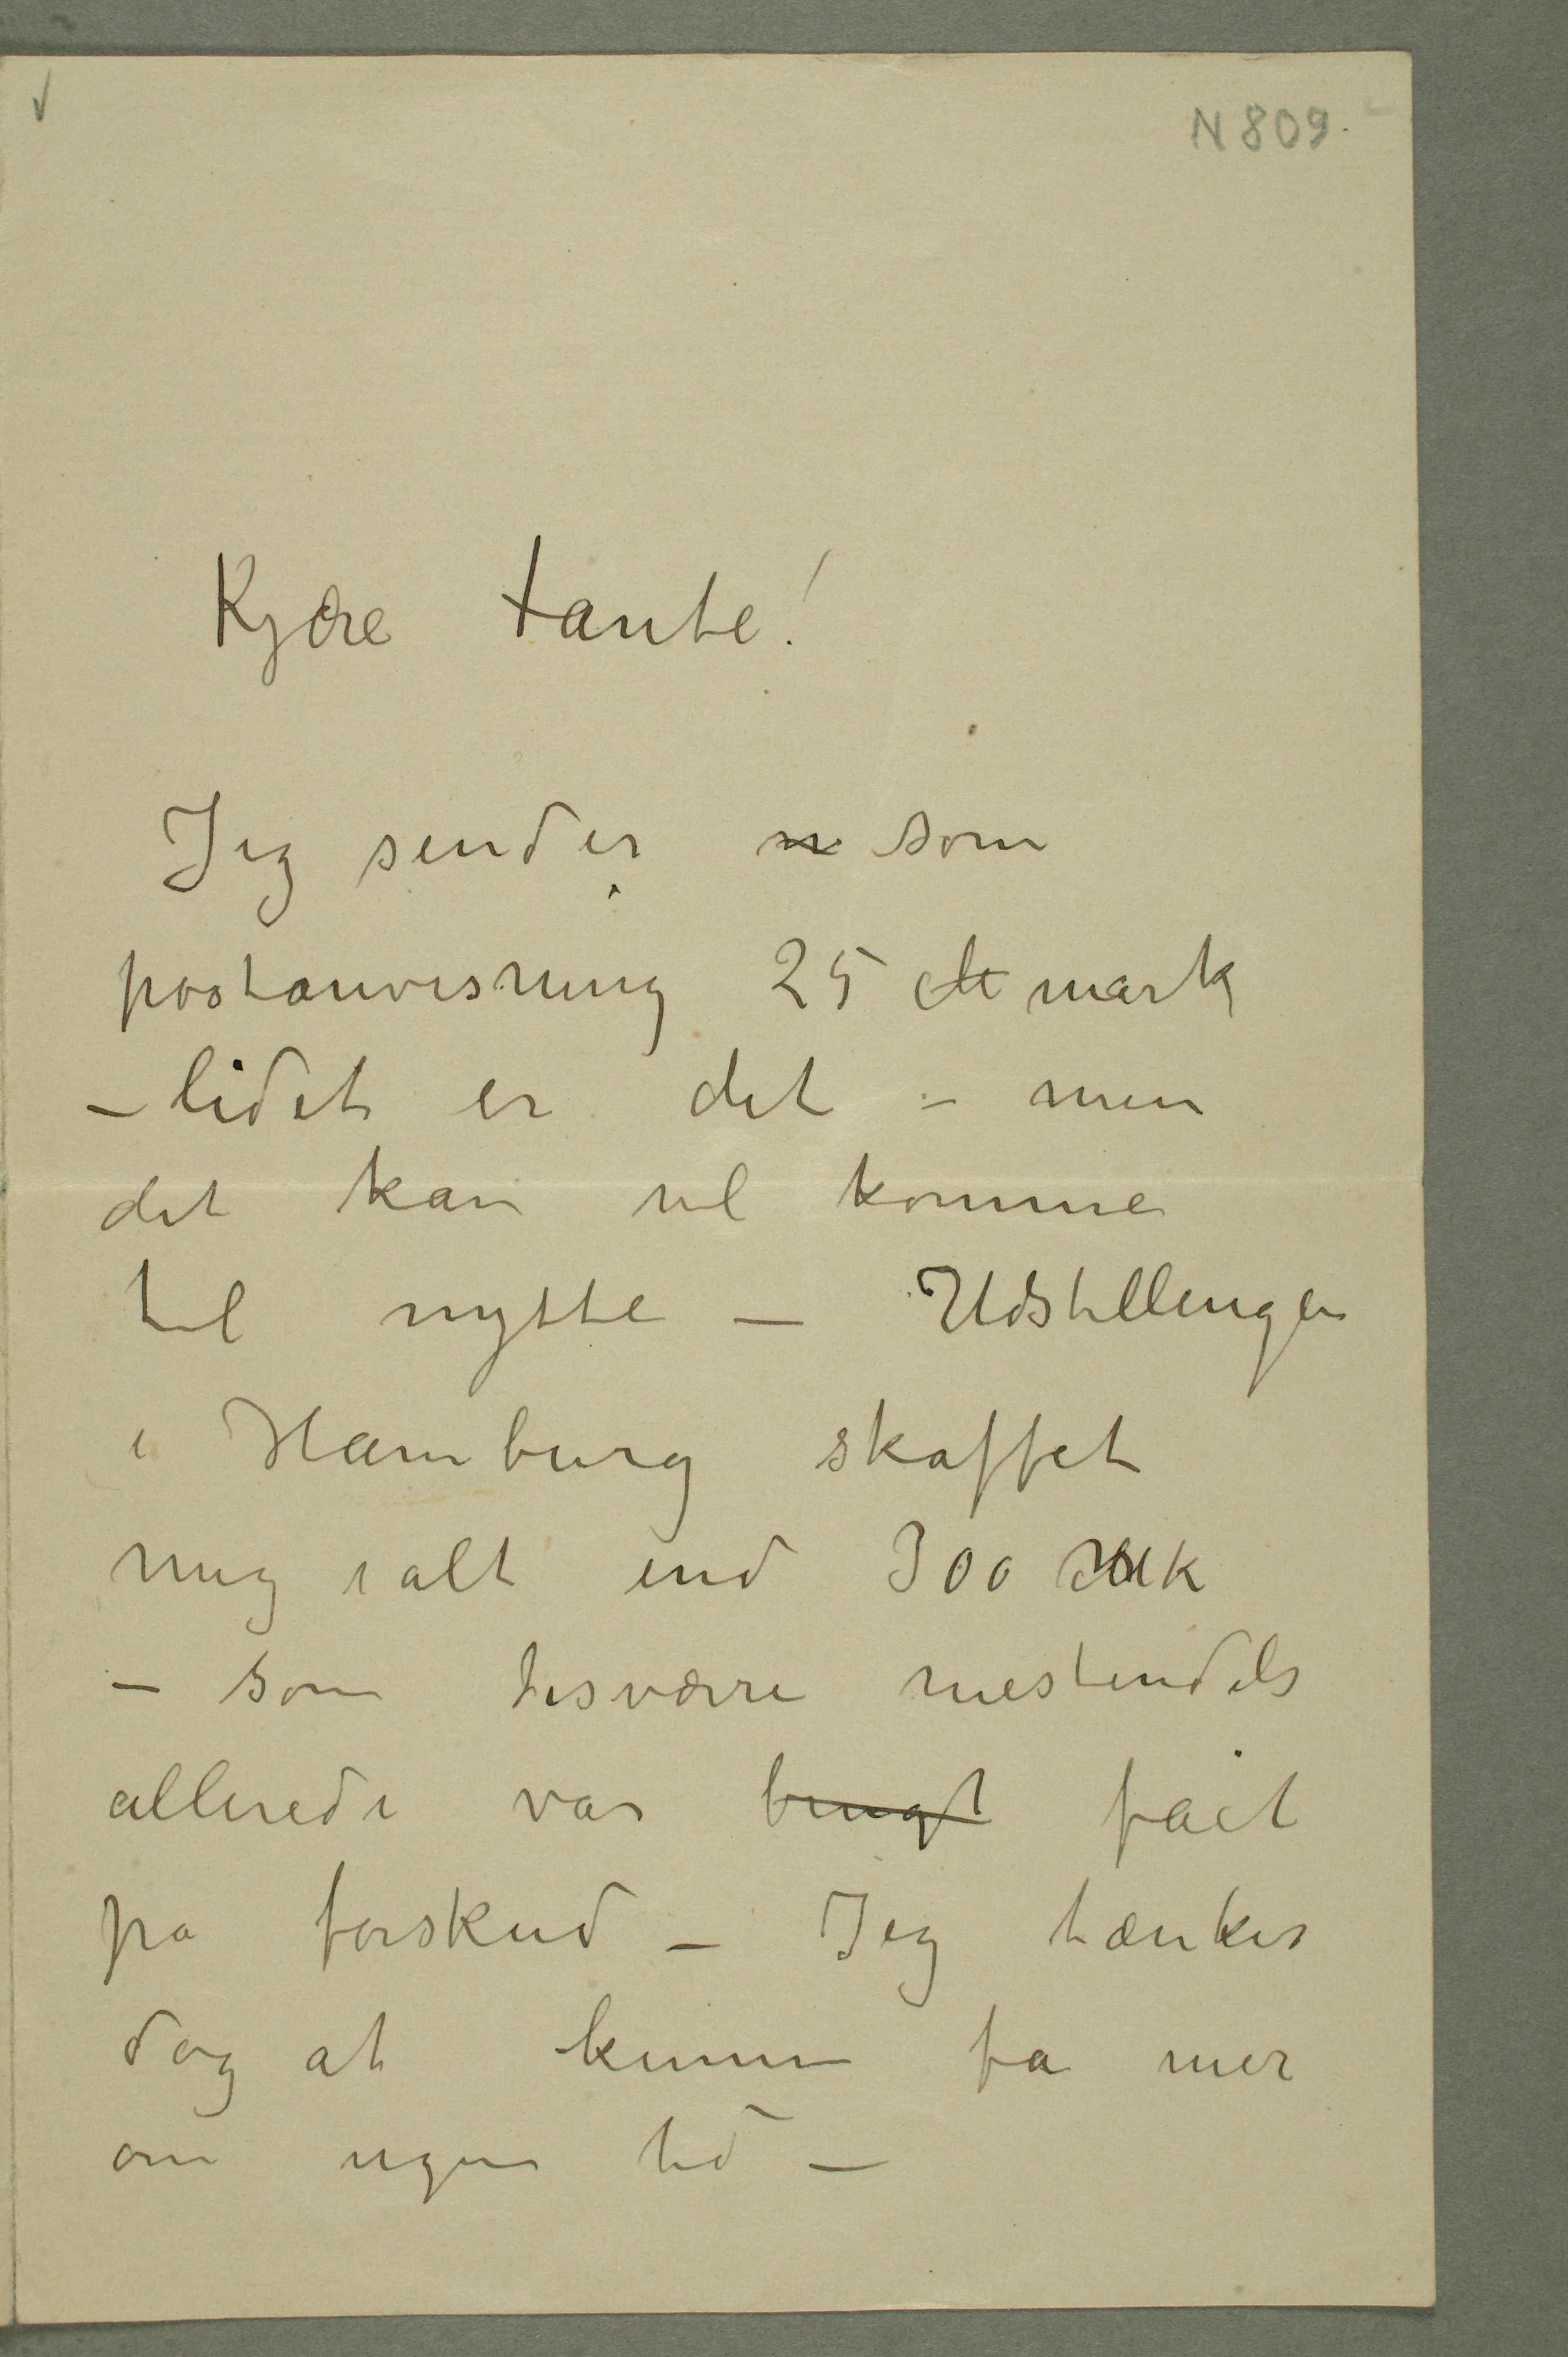 N 809.
Kjære tante!
Jeg sender n som
postanvisning 25 M mark
– lidet er det – men
det kan vel komme
til nytte – Udstillingen
i Hamburg skaffet
mig ialt end 300 Mk
– som desværre mestendels
allerede var brugt fået
på forskud – Jeg tænker
dog at kunne få mer
om nogen tid –